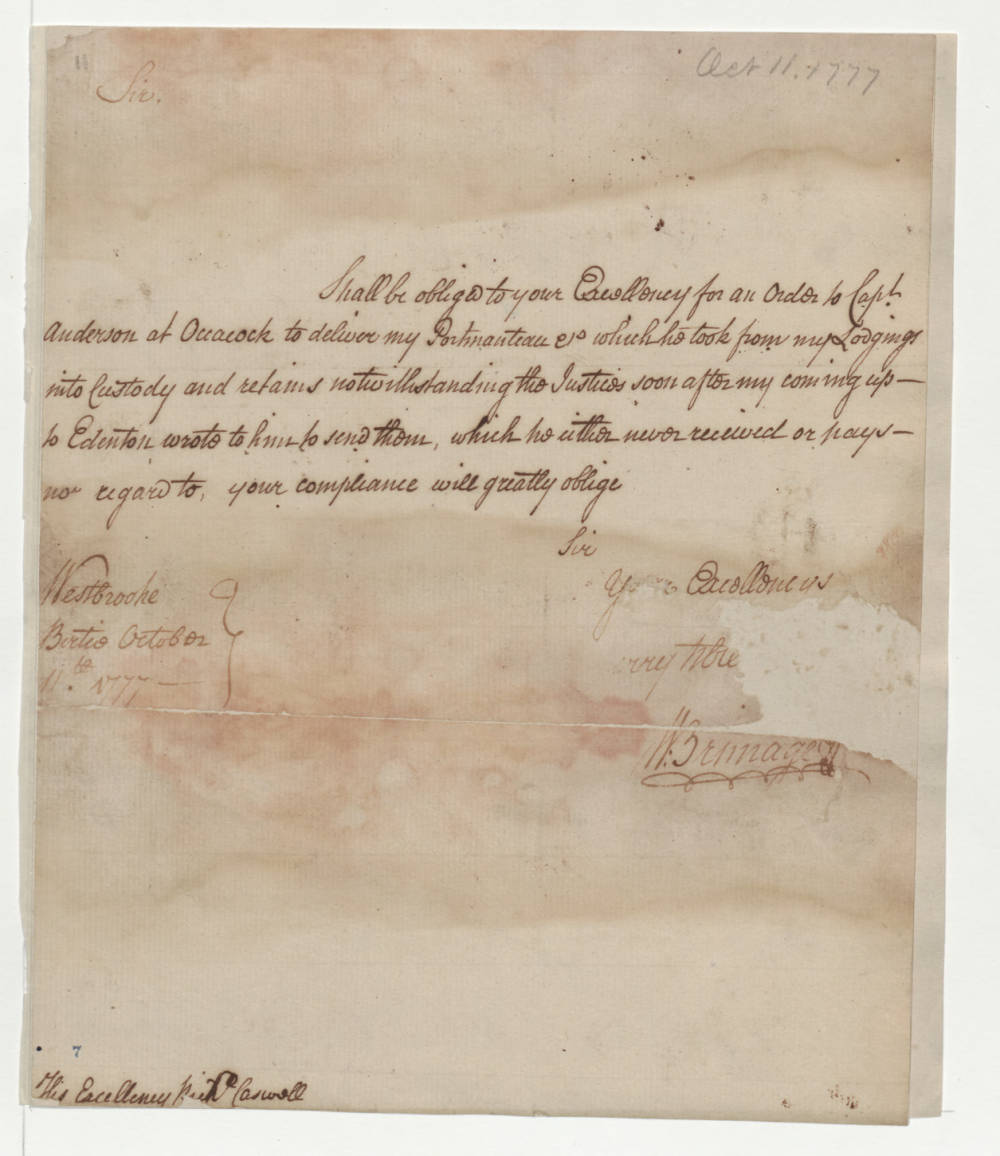 11
Oct 11. 1777
Sir.
Shall be obliged to your Excellency for an Order to Capt.
Anderson at Occacock to deliver my Portmanteau &c which he took from my Lodgings
into Custody and retains notwithstanding the Justices soon after my coming up—
to Edenton wrote to him to send them, which he either never received or pays—
no regard to, your compliance will greatly oblige
Sir
Your Excellencys
Westbrooke
Bertie October
11th 1777—
W: Brimage
7
His Excellency Richd. Caswell